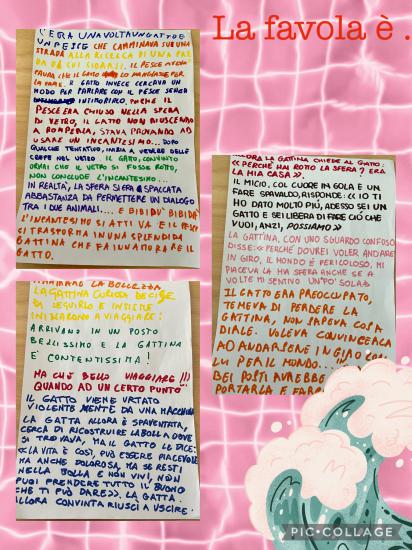 La favola è .
C'ERA UNA VOLTA UN GATTO E
UN PESCE CHE CAMMINAVA SU UNA
STRADA ALLA RICERCA DI UNA
DI CHI FIDARSI. IL PESCE AVEVA
PAURA CHE IL GATTO LO MANGIASSE PER
LA FAME. IL GATTO INVECE CERCAVA UN
MODO PER PARLARE CON IL PESCE SENZA
INTIMORIRLO. POICHÉ IL
PESCE ERA CHIUSO NELLA SFERA
DI VETRO, IL GATTO NON RIUSCENDO
A ROMPERLA, STAVA PROVANDO AD
USARE UN INCANTESIMO... DOPO
QUALCHE TENTATIVO, INIZIA A VEDERE DELLE
CREPE NEL VETRO. IL GATTO, CONVINTO
ORMAI CHE IL VETRO SI FOSSE ROTTO,
NON CONCLUDE L'INCANTESIMO...
IN REALTÀ, LA SFERA SI ERA SPACCATA
ABBASTANZA DA PERMETTERE UN DIALOGO
TRA I DUE ANIMALI.... E BIBIDI BIBIDI
L'INCANTESIMO SI ATTIVA E IL PESCE
SI TRASFORMA IN UNA SPLENDIDA
GATTINA CHE FA INNAMORARE IL
GATTO.
ALLORA LA GATTINA CHIEDE AL GATTO:
<< PERCHÉ HAI ROTTO LA SFERA? ERA
LA MIA CASA>>.
IL MICIO, COL CUORE IN GOLA E UN
FARE SPAVALDO, RISPONDE: << IO TI
HO DATO MOLTO PIÙ, ADESSO SEI UN
GATTO E SEI LIBERA DI FARE CIÒ CHE
VUOI, ANZI, POSSIAMO>>
LA GATTINA, CON UNO SGUARDO CONFUSO
DISSE: << PERCHÉ DOVREI VOLER ANDARE
IN GIRO, IL MONDO È PERICOLOSO, MI
PIACEVA LA MIA SFERA ANCHE SE A
VOLTE MI SENTIVO UN PO' SOLA>>
IL GATTO ERA PREOCCUPATO,
TEMEVA DI PERDERE LA
GATTINA, NON SAPEVA COSA
DIRLE. VOLEVA CONVINCERLA
AD ANDARSENE IN GIRO CON
LUI PER IL MONDO...
BEI POSTI AVREBBE
PORTARLA E FARE
LA BOLLEZZA
LA GATTINA CURIOSA DECISE
DI SEGUIRLO E INSIEME
INIZIARONO A VIAGGIARE:
ARRIVANO IN UN POSTO
BELLISSIMO E LA GATTINA
E' CONTENTISSIMA!
MA CHE BELLO VIAGGIARE!!!
QUANDO AD UN CERTO PUNTO
IL GATTO VIENE URTATO
VIOLENTEMENTE DA UNA MACCHINA
LA GATTA ALLORA È SPAVENTATA,
CERCA DI RICOSTRUIRE LA BOLLA DOVE
SI TROVAVA, MA IL GATTO LE DICE:
<<LA VITA È COSÌ, PUÒ ESSERE PIACEVOLE
MA ANCHE DOLOROSA, MA SE RESTI
NELLA BOLLA E NON VIVI, NON
PUOI PRENDERE TUTTO IL BUONO
CHE TI PUÒ DARE>>. LA GATTA
ALLORA CONVINTA RIUSCÌ A USCIRE.
PIC•COLLAGE